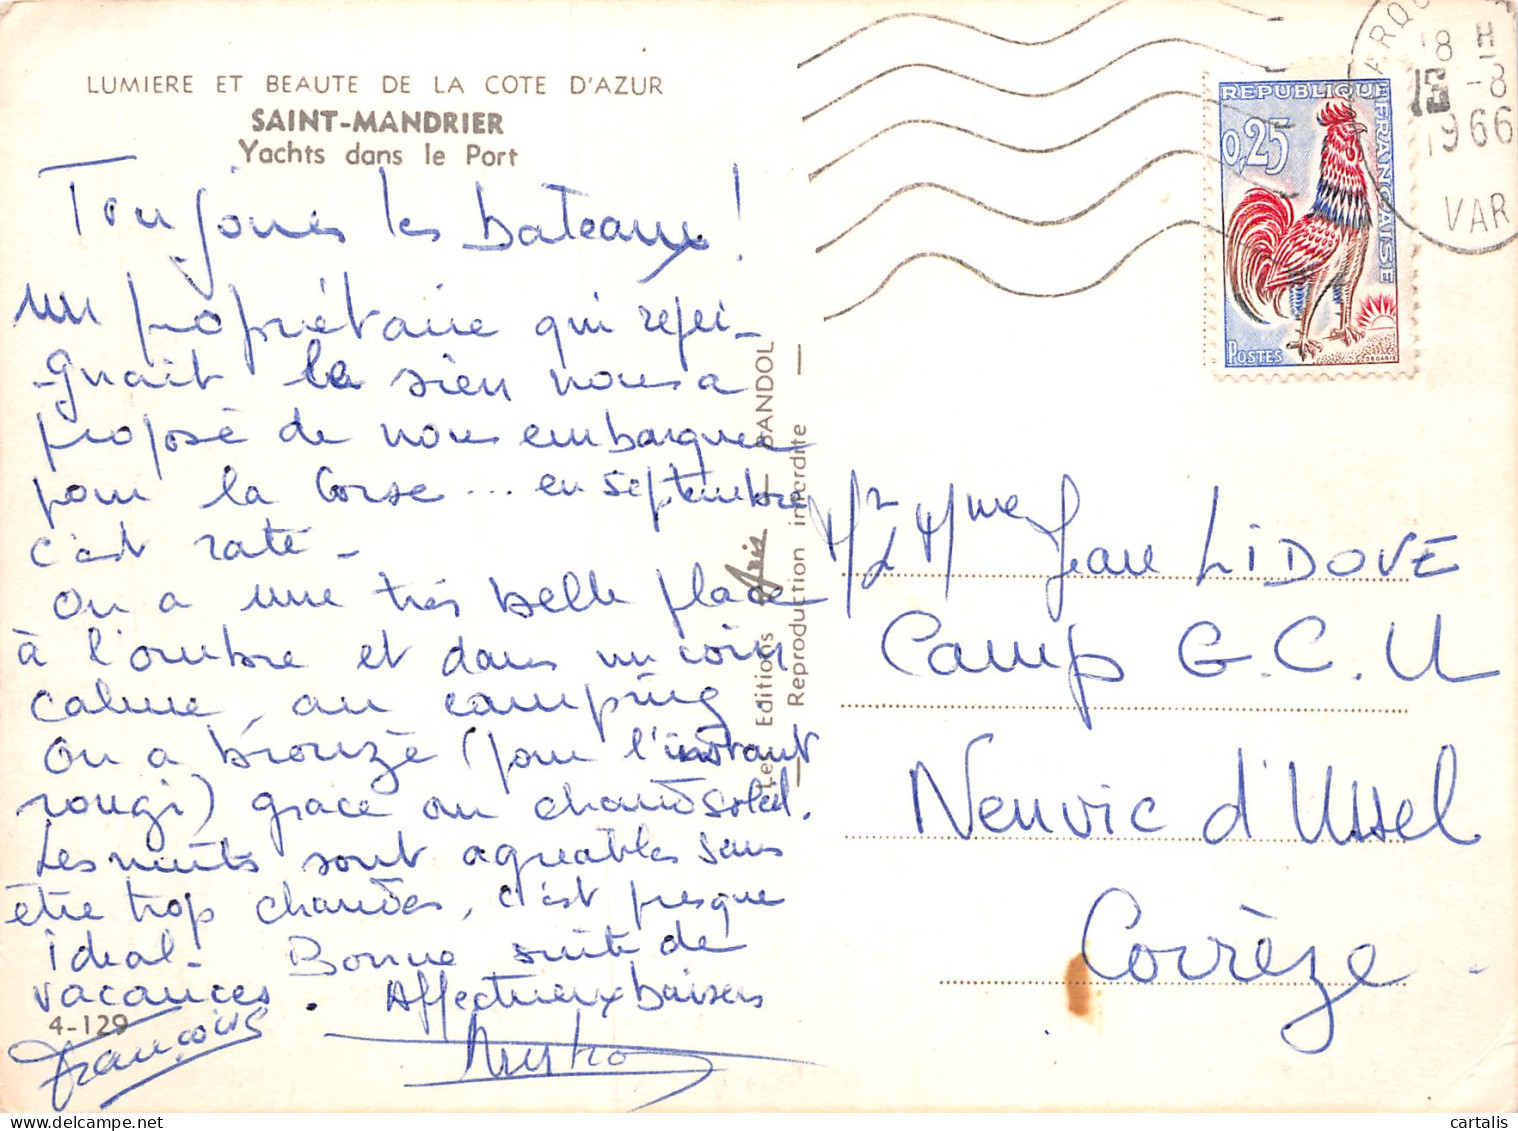 LUMIERE ET BEAUTE DE LA COTE D'AZUR
SAINT-MANDRIER
Yachts dans le Port
Toujours les bateaux !
un propriétaire qui repei-
gnait le sien nous a
proposé de nous embarquer
pour la Corse ... en septembre
c'est raté -
On a une très belle place
à l'ombre et dans un coin
calme, au camping
On a bronzé (pour l'instant
rougi) grace au chaud soleil.
Les nuits sont agréables sans
être trop chaudes, c'est presque
idéal - Bonne suite de
vacances. Affectueux baisers
4-129
François
Les Editions Aris — BANDOL
— Reproduction interdite —
REPUBLIQUE FRANÇAISE
0,25
POSTES
DECARIS
18 H
15 -8
1966
VAR
Mr & Mme Jean LIDOVE
Camp G.C.U
Neuvic d'Ussel
Corrèze
cartalis